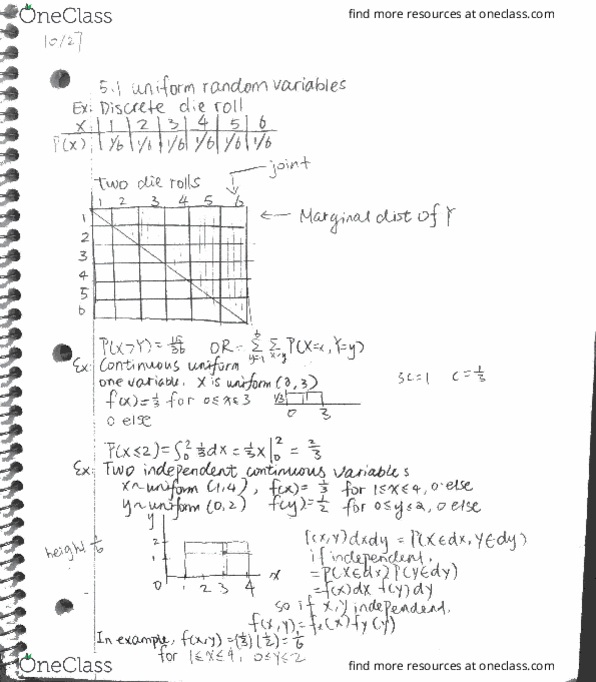 OneClass
find more resources at oneclass.com
10/27
5.1 uniform random variables
Ex: Discrete die roll
X: 1 2 3 4 5 6
P(X) 1/6 1/6 1/6 1/6 1/6 1/6
joint
Two die rolls
1 2 3 4 5 6
← Marginal dist of Y
1
2
3
4
5
6
P(X>Y) = 15/36 OR = Σ Σ P(X=x, Y=y)
Ex: Continuous uniform
one variable. X is uniform (0,3)
3c=1 c=1/3
f(x)=1/3 for 0≤x≤3
1/3
0 3
0 else
P(X≤2) = ∫₀² 1/3 dx = 1/3 x |₀² = 2/3
Ex: Two independent continuous variables
x~uniform (1,4), f(x)= 1/3 for 1≤x≤4, 0 else
y~uniform (0,2) f(y)=1/2 for 0≤y≤2, 0 else
y
2
1
0 1 2 3 4 x
height 1/6
f(x,y)dxdy = P(X∈dx, Y∈dy)
if independent,
= P(X∈dx) P(Y∈dy)
= f(x)dx f(y)dy
so if x,y independent,
f(x,y) = fx(x) fy(y)
In example, f(x,y) = (1/3)(1/2) = 1/6
for 1≤x≤4, 0≤y≤2
OneClass
find more resources at oneclass.com